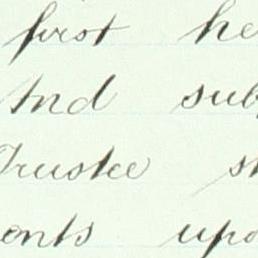 first he
And sub
Trustee s
ents upo